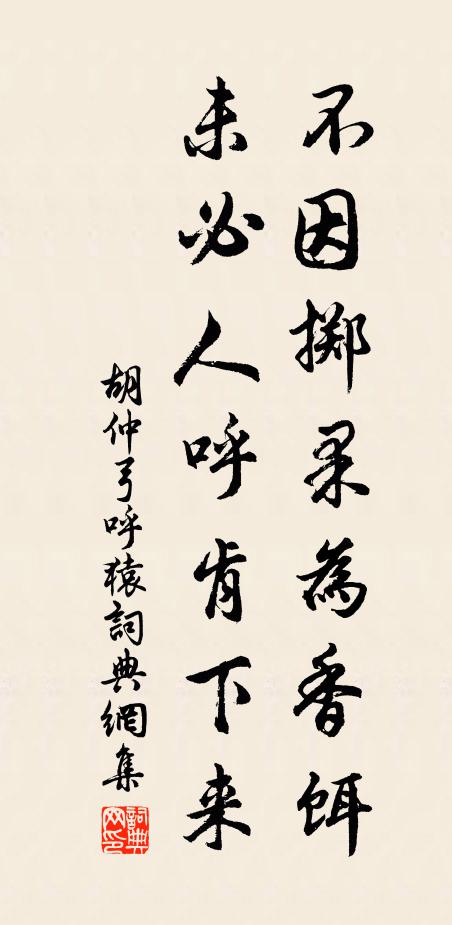 不因掷果為香餌
未必人呼肯下来
胡仲弓呼猿詞典網集
詞典网印